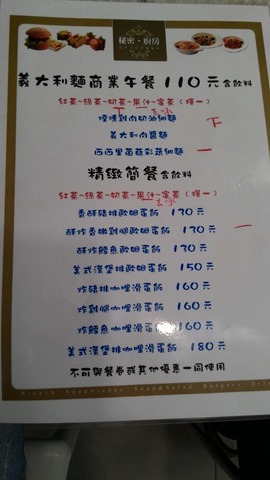 秘密·廚房
義大利麵商業午餐 110元含飲料
紅茶~綠茶~奶茶~果汁~蜜茶(擇一)
去冰
煙燻雞肉奶油細麵
下
義大利肉醬麵
西西里菌菇彩蔬細麵 一
精緻簡餐含飲料
紅茶~綠茶~奶茶~果汁~蜜茶(擇一)
去冰
香酥豬排歐姆蛋飯 130元
酥炸香嫩雞腿歐姆蛋飯 130元 一
酥炸鱈魚歐姆蛋飯 130元
美式漢堡排歐姆蛋飯 150元
炸豬排咖哩滑蛋飯 160元
炸雞腿咖哩滑蛋飯 160元
炸鱈魚咖哩滑蛋飯 160元
美式漢堡排咖哩滑蛋飯 180元
不可與餐卷或其他優惠一同使用